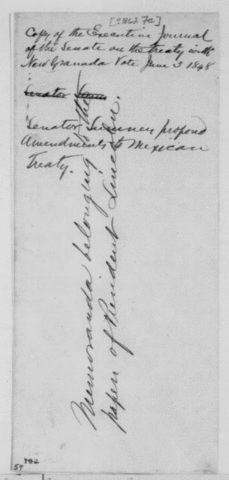 [1862 ?]
Copy of the Executive Journal
of the Senate on the treaty with
New Granada Vote June 3 1848
Senator Sumner
Senator Sumner, propsd
Amendments to Mexican
Treaty.
Memoranda belonging to the
papers of President Lincoln.
57